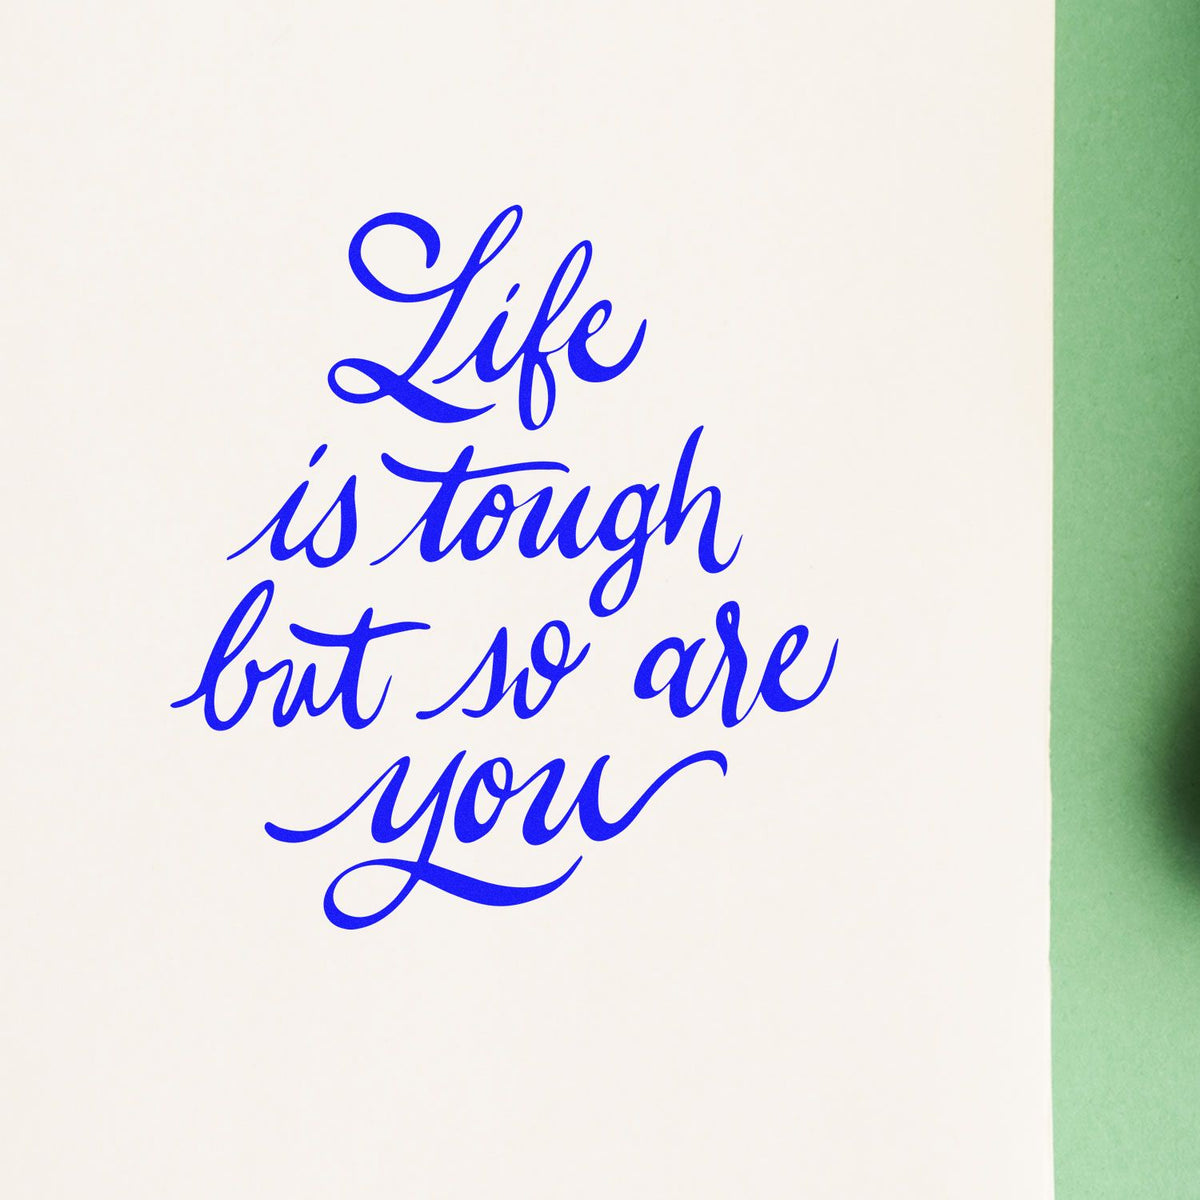 Life
is tough
but so are
you